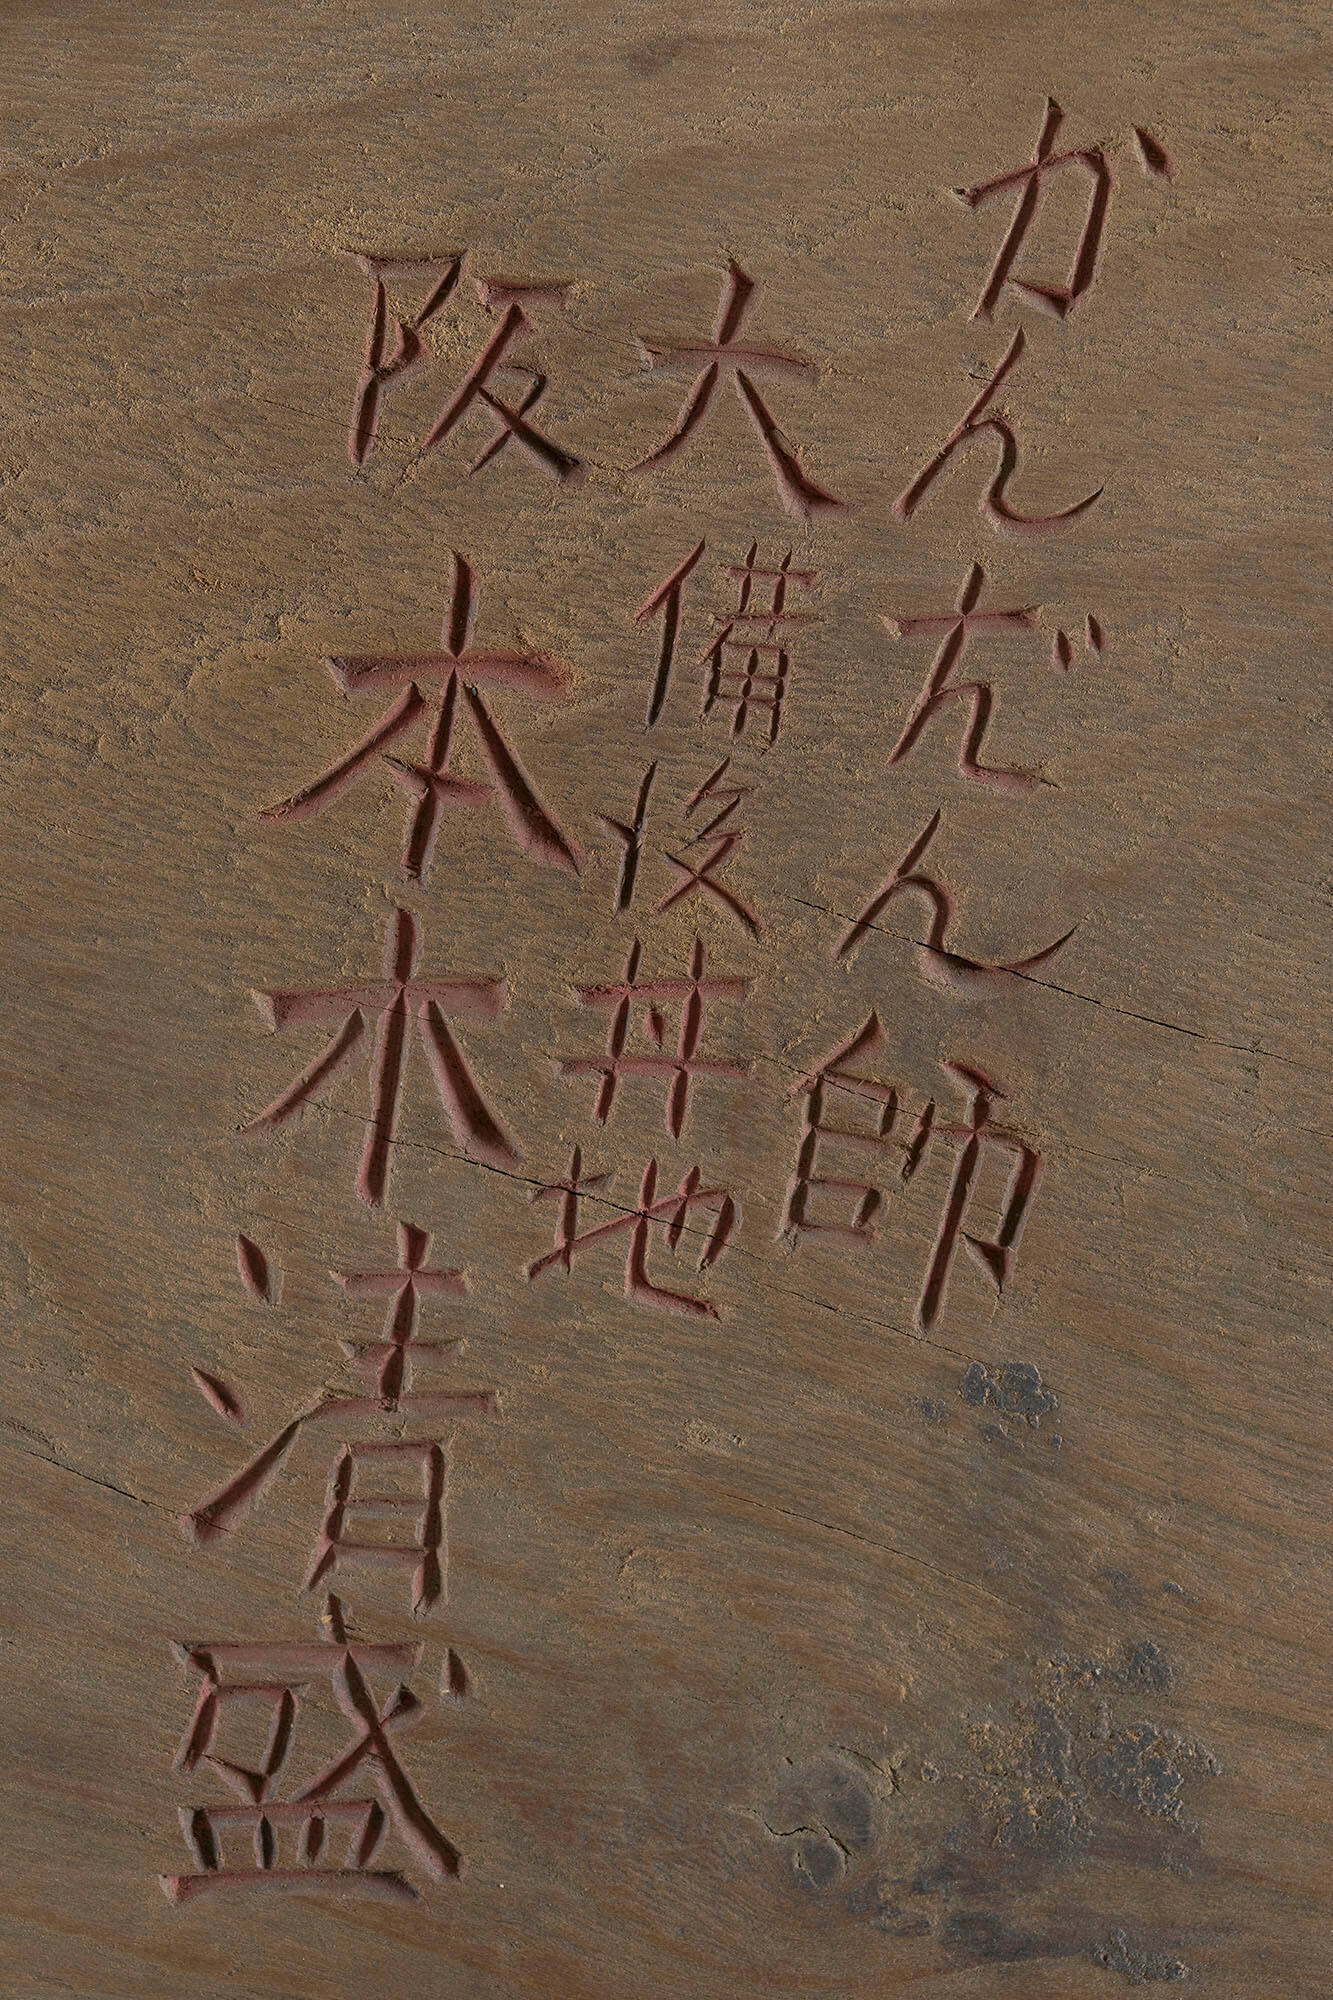 かんだん師
大阪
備後丼地
本木清盛